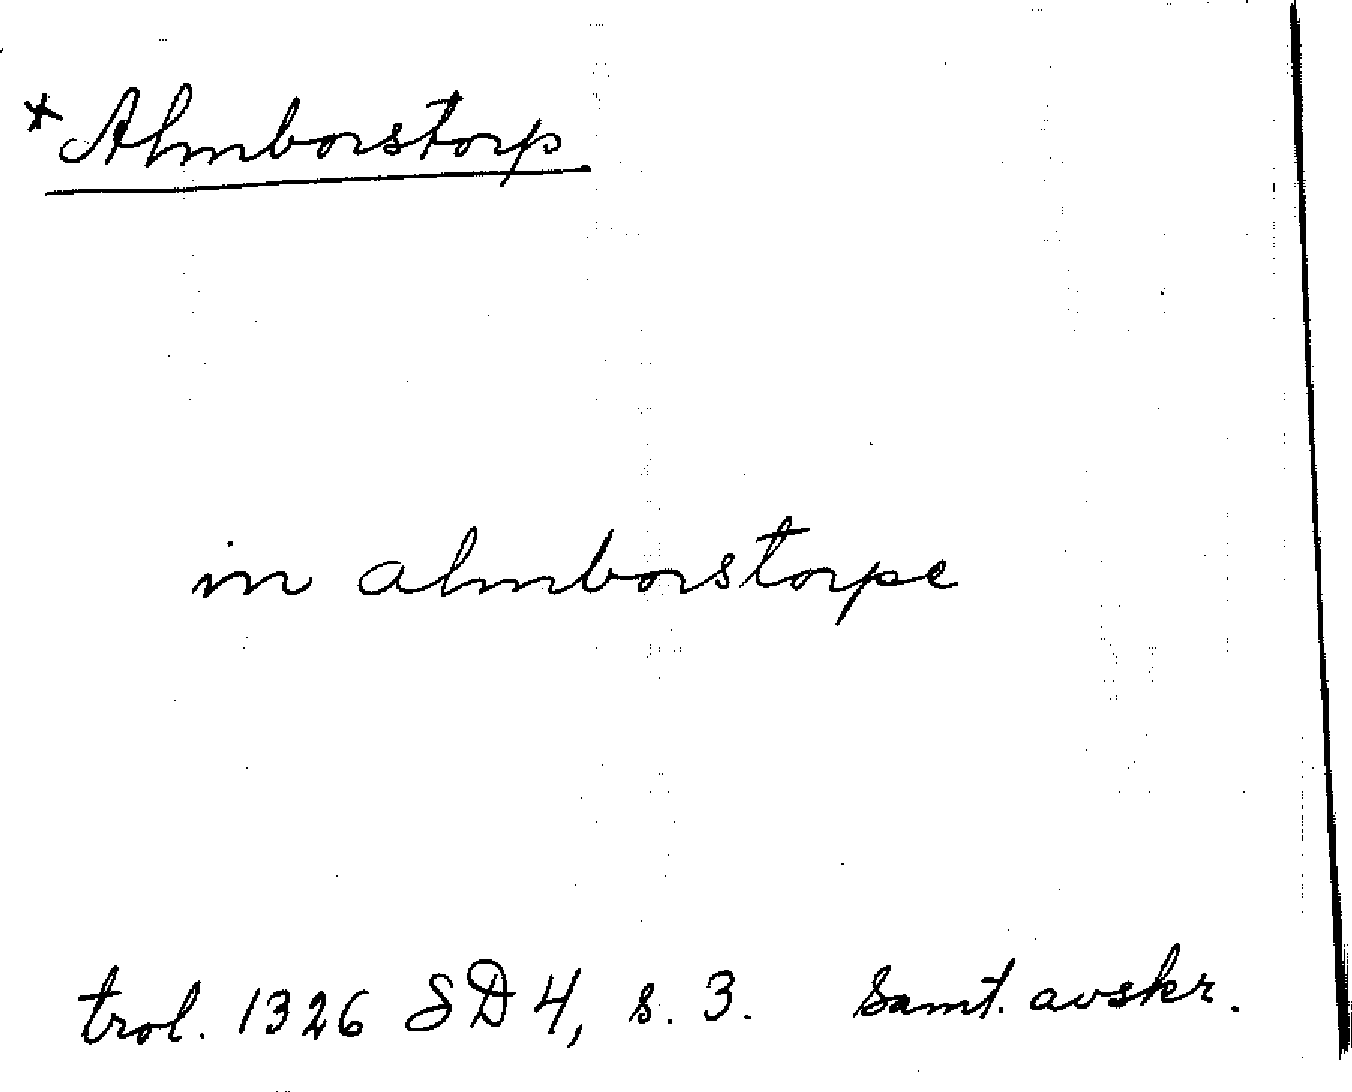 *Almborstorp
in almborstorpe
trol. 1326 SD 4, s. 3. Samt. avskr.